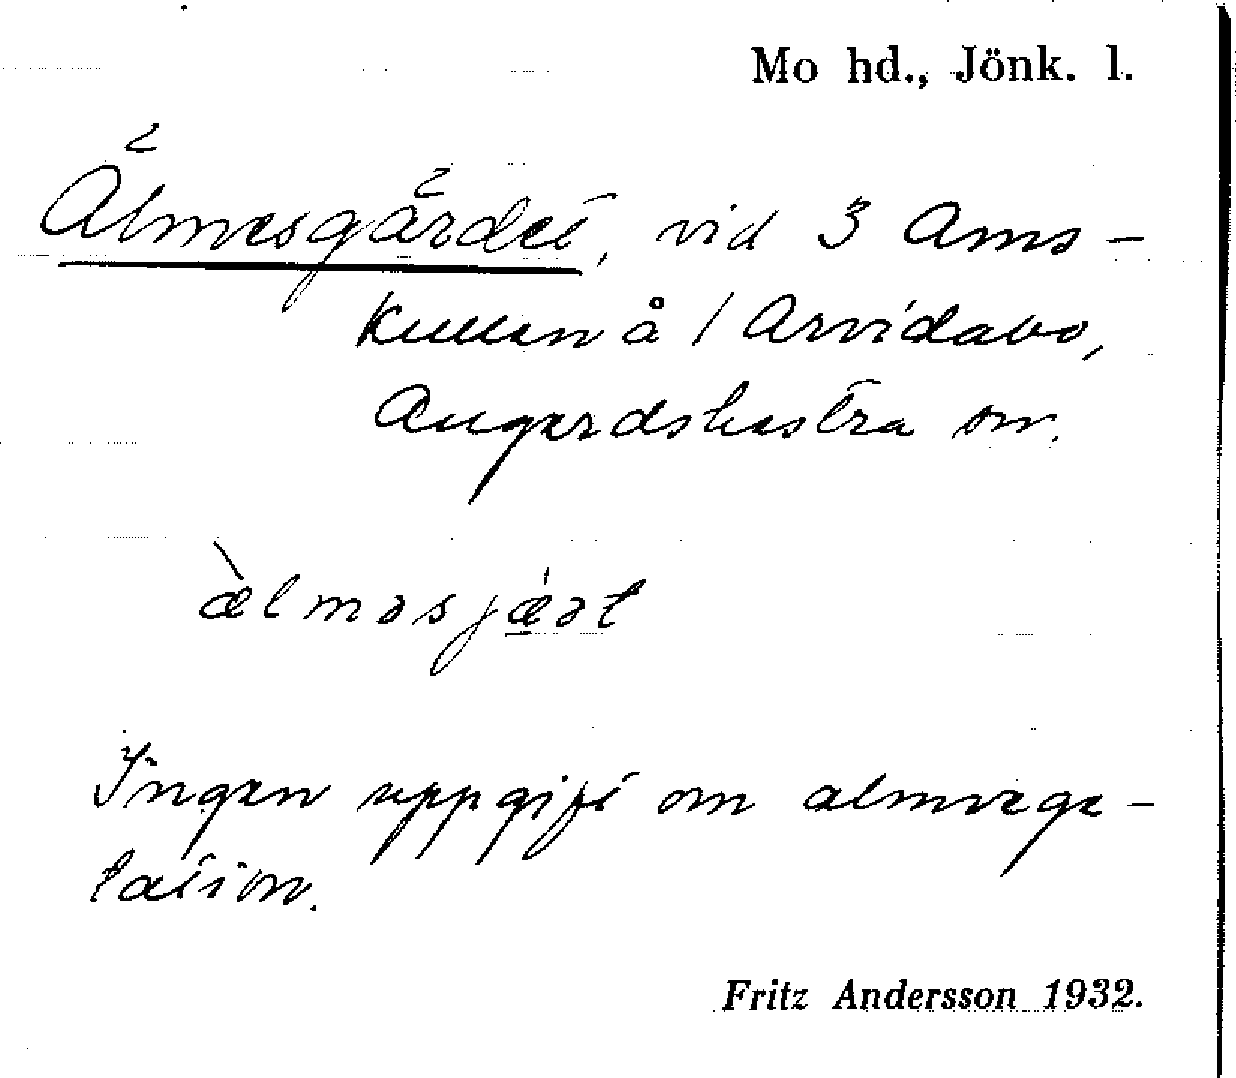 Mo hd., Jönk. l.
Älmesgärdet, vid 3 Ams-
kullen å / Arvidabo,
Angerdshestra sn.
àlmasjæ̀ət
Ingen uppgift om almvege-
tation.
Fritz Andersson 1932.